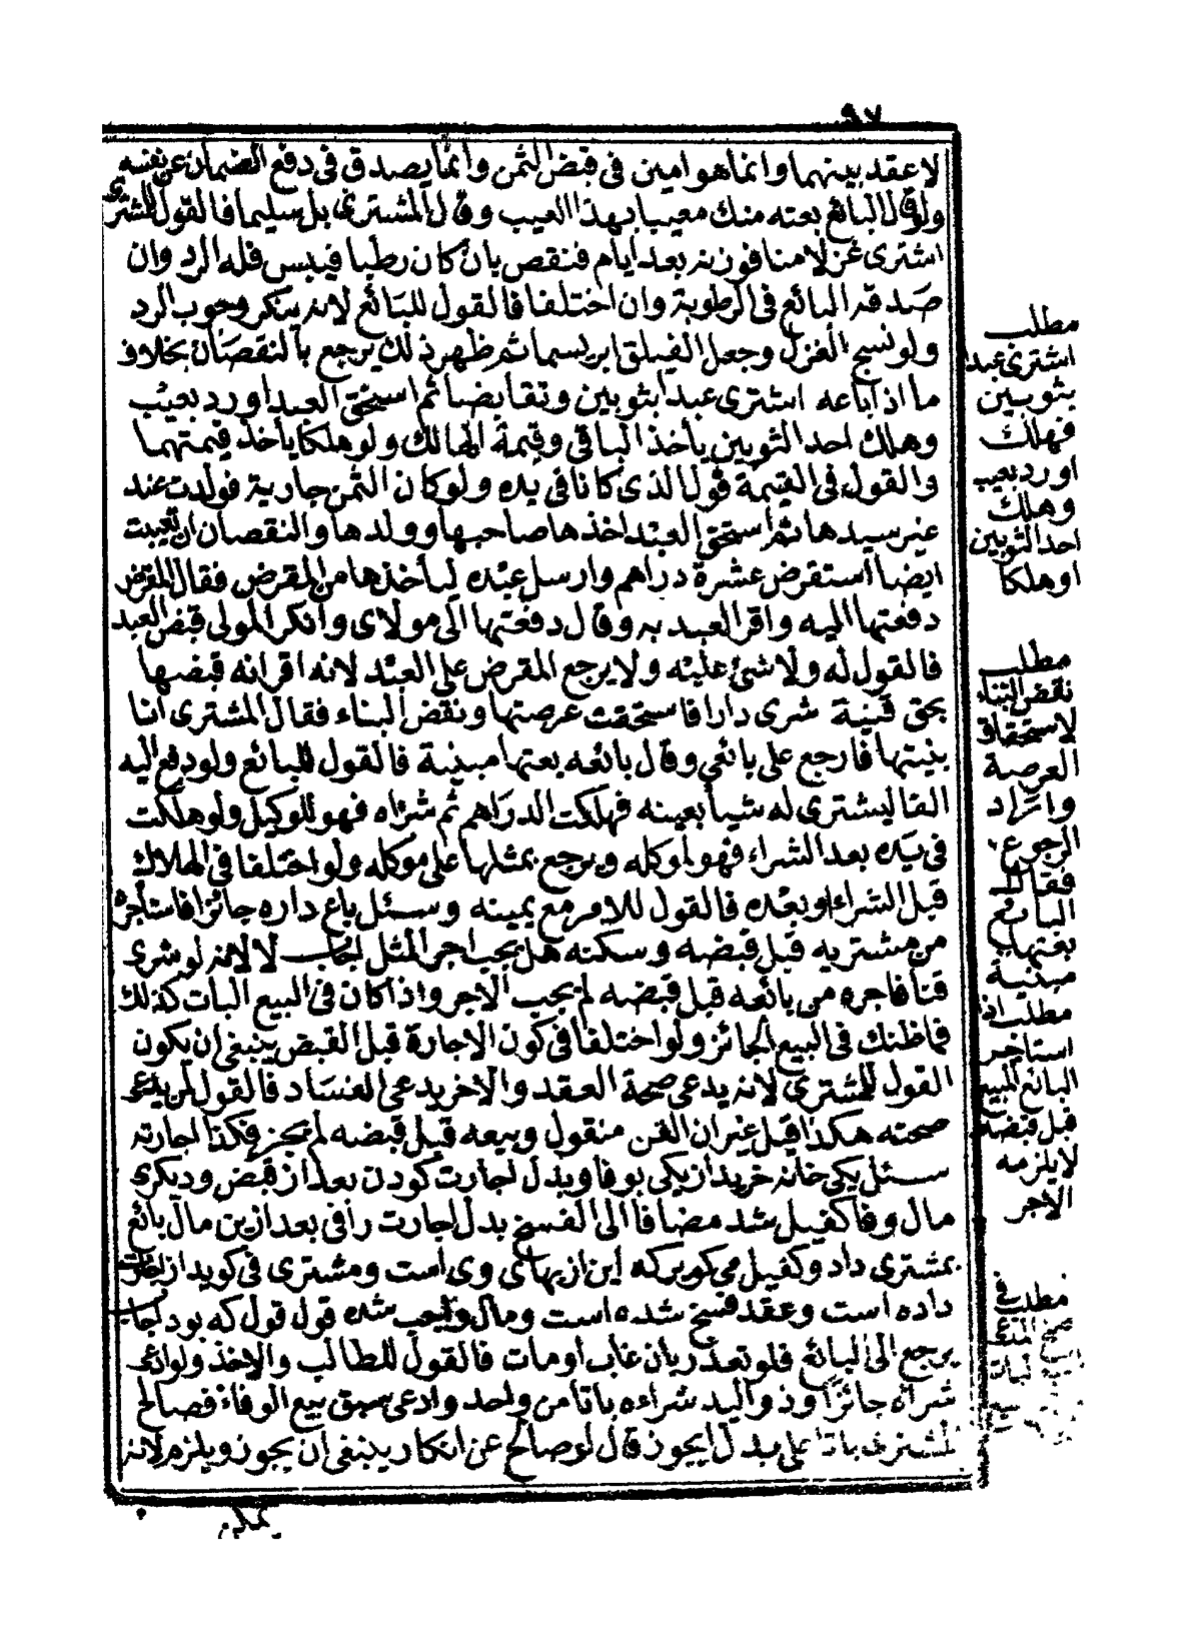 ٩٧
لا عقد بينهما وانما هو امين فى قبض الثمن وانما يصدق فى دفع الضمان عن نفسه
ولو قال البائع بعته منك معيبا بهذا العيب وقال المشترى بل سليما فالقول للمشترى
اشترى غزلا منا فوزنه بعد ايام فنقص بان كان رطبا فيبس فله الرد وان
صدقه البائع فى الرطوبة وان اختلفا فالقول للبائع لانه ينكر وجوب الرد
ولو نسج الغزل وجعل الفيلق ابريسما ثم ظهر ذلك يرجع بالنقصان بخلاف
ما اذا باعه اشترى عبدا بثوبين وتقابضا ثم استحق العبد او رد بعيب
وهلك احد الثوبين يأخذ الباقى وقيمة الهالك ولو هلكا يأخذ قيمتهما
والقول فى القيمة قول الذى كانا فى يده ولو كان الثمن جارية فولدت عند
غير سيدها ثم استحق العبد اخذها صاحبها وولدها والنقصان ان تعيبت
ايضا استقرض عشرة دراهم وارسل عبده ليأخذها من المقرض فقال المقرض
دفعتها اليه واقر العبد به وقال دفعتها الى مولاى وانكر المولى قبض العبد
فالقول له ولا شئ عليه ولا يرجع المقرض على العبد لانه اقر انه قبضها
بحق قنية شرى دارا فاستحقت عرصتها ونقض البناء فقال المشترى انا
بنيتها فارجع على بائعى وقال بائعه بعتها مبنية فالقول للبائع ولو دفع اليه
الفا ليشترى له شيأ بعينه فهلكت الدراهم ثم شراه فهو للوكيل ولو هلكت
فى يده بعد الشراء فهو لموكله ويرجع بمثلها على موكله ولو اختلفا فى الهلاك
قبل الشراء او بعده فالقول للامر مع يمينه وسئل باع داره جائزا فاستأجره
من مشتريه قبل قبضه وسكنه هل يجب اجر المثل اجاب لا لانه لو شرى
قنا فاجره من بائعه قبل قبضه لم يجب الاجر واذا كان فى البيع البات كذلك
فما ظنك فى البيع الجائز ولو اختلفا فى كون الاجارة قبل القبض ينبغى ان يكون
القول للمشترى لانه يدعى صحة العقد والاخر يدعى الفساد فالقول لمن يدعى
صحته هكذا قيل غير ان القن منقول وبيعه قبل قبضه لم يجز فكذا اجارته
سئل يكى خانه خريد از يكى بوفا وبدل اجارت كودن بعد از قبض وديكرى
مال وفا كفيل شد مضافا الى الفسخ بدل اجارت رافى بعد ازين مال بائع
بمشترى داد وكفيل مى كويد كه اين از بهاى وى است ومشترى مى كويد از اجارت
داده است وعقد فسخ شده است ومال واجب شده قول قول كه بود اجاب
يرجع الى البائع فلو تعذر بان غاب او مات فالقول للطالب والاخذ ولو ادعى
شراه جائزا وذو اليد شراءه باتا من واحد وادعى سبق بيع الوفاء فصالح
المشترى باتا على بدل ايجوز قال لو صالح عن انكار ينبغى ان يجوز ويلزم لانه
يمكن
مطلب
اشترى عبدا
بثوبين
فهلك
او رد بعيب
وهلك
احد الثوبين
او هلكا
مطلب
نقض البناء
لاستحقاق
العرصة
واراد
الرجوع
فقال
البائع
بعتها
مبنية
مطلب اذا
استاجر
البائع المبيع
قبل قبضه
لا يلزمه
الاجر
مطلب فى